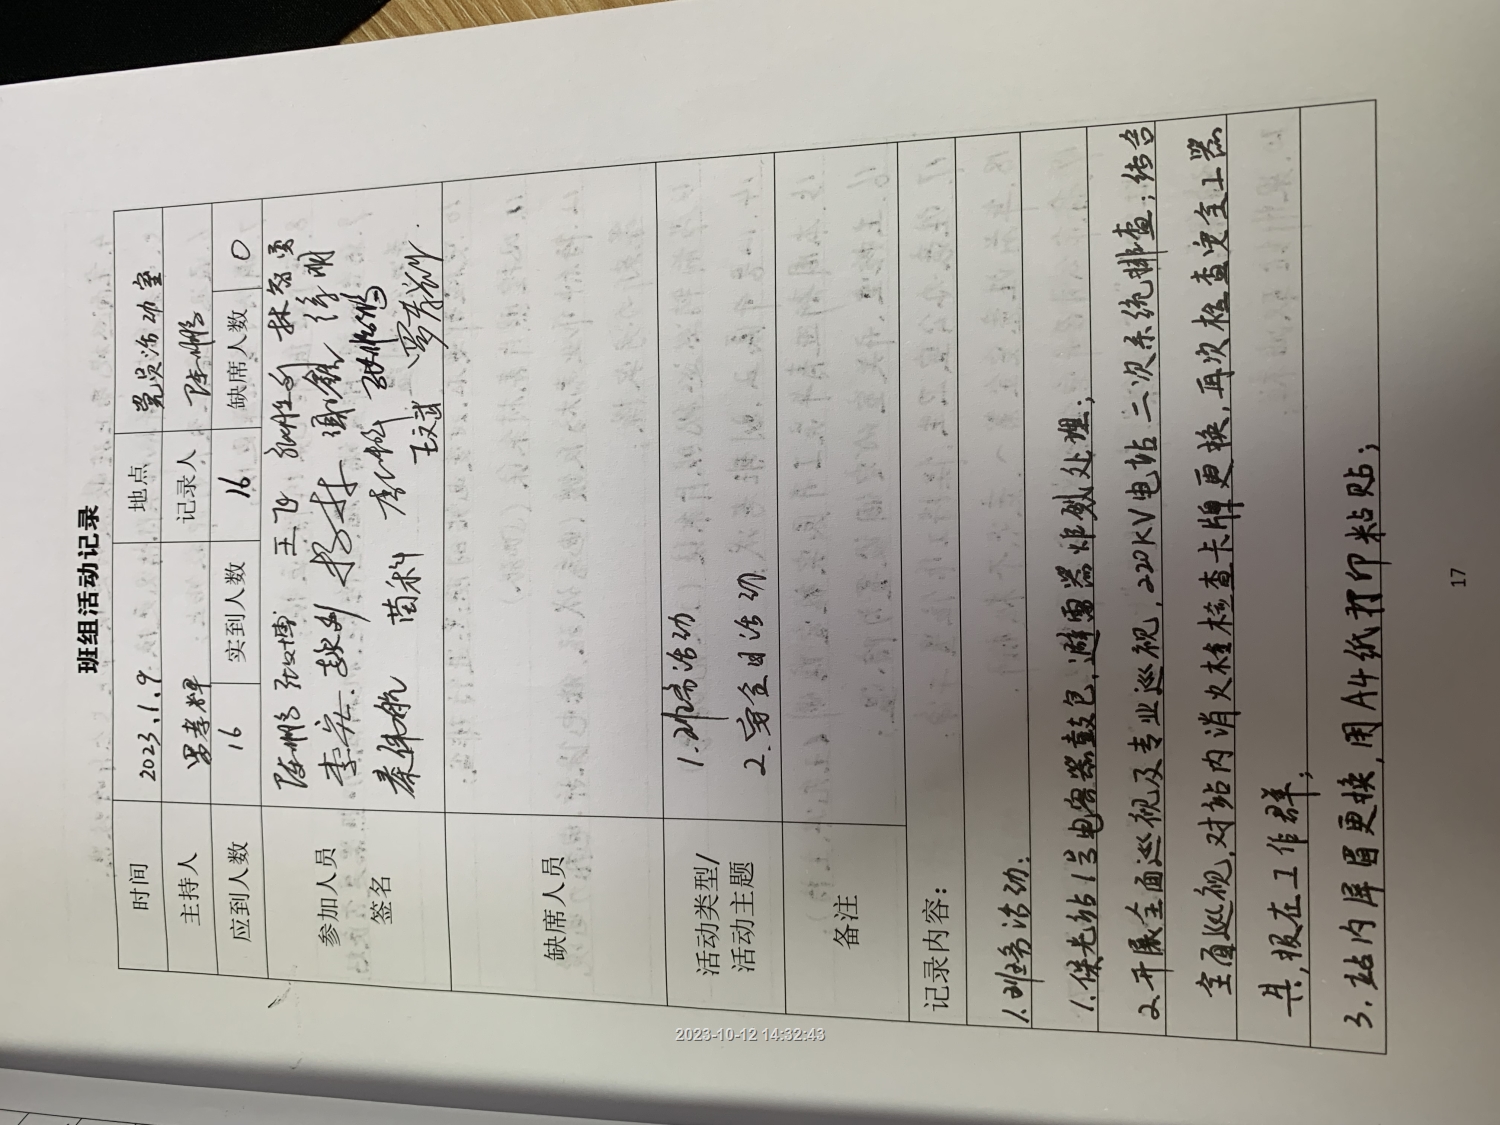 班组活动记录
时间 2023.1.9 地点 党员活动室
主持人 记录人 陈鹏
应到人数 16 实到人数 16 缺席人数 0
参加人员
签名
陈鹏 张文博 王飞
李宏 赵利 杨林
秦伟航 苗科
王文武
缺席人员
活动类型/
活动主题
1.班务活动
2.安全日活动
备注
记录内容:
1.班务活动:
1.侯光站1号电容器鼓包,避雷器炸裂处理;
2.开展全面巡视及专业巡视,220KV电站二次系统排查;结合
全面巡视,对站内消火栓检查卡牌更换,再次检查安全工器
具,报在工作群;
3.站内屏眉更换,用A4纸打印粘贴;
17
2023-10-12 14:32:43